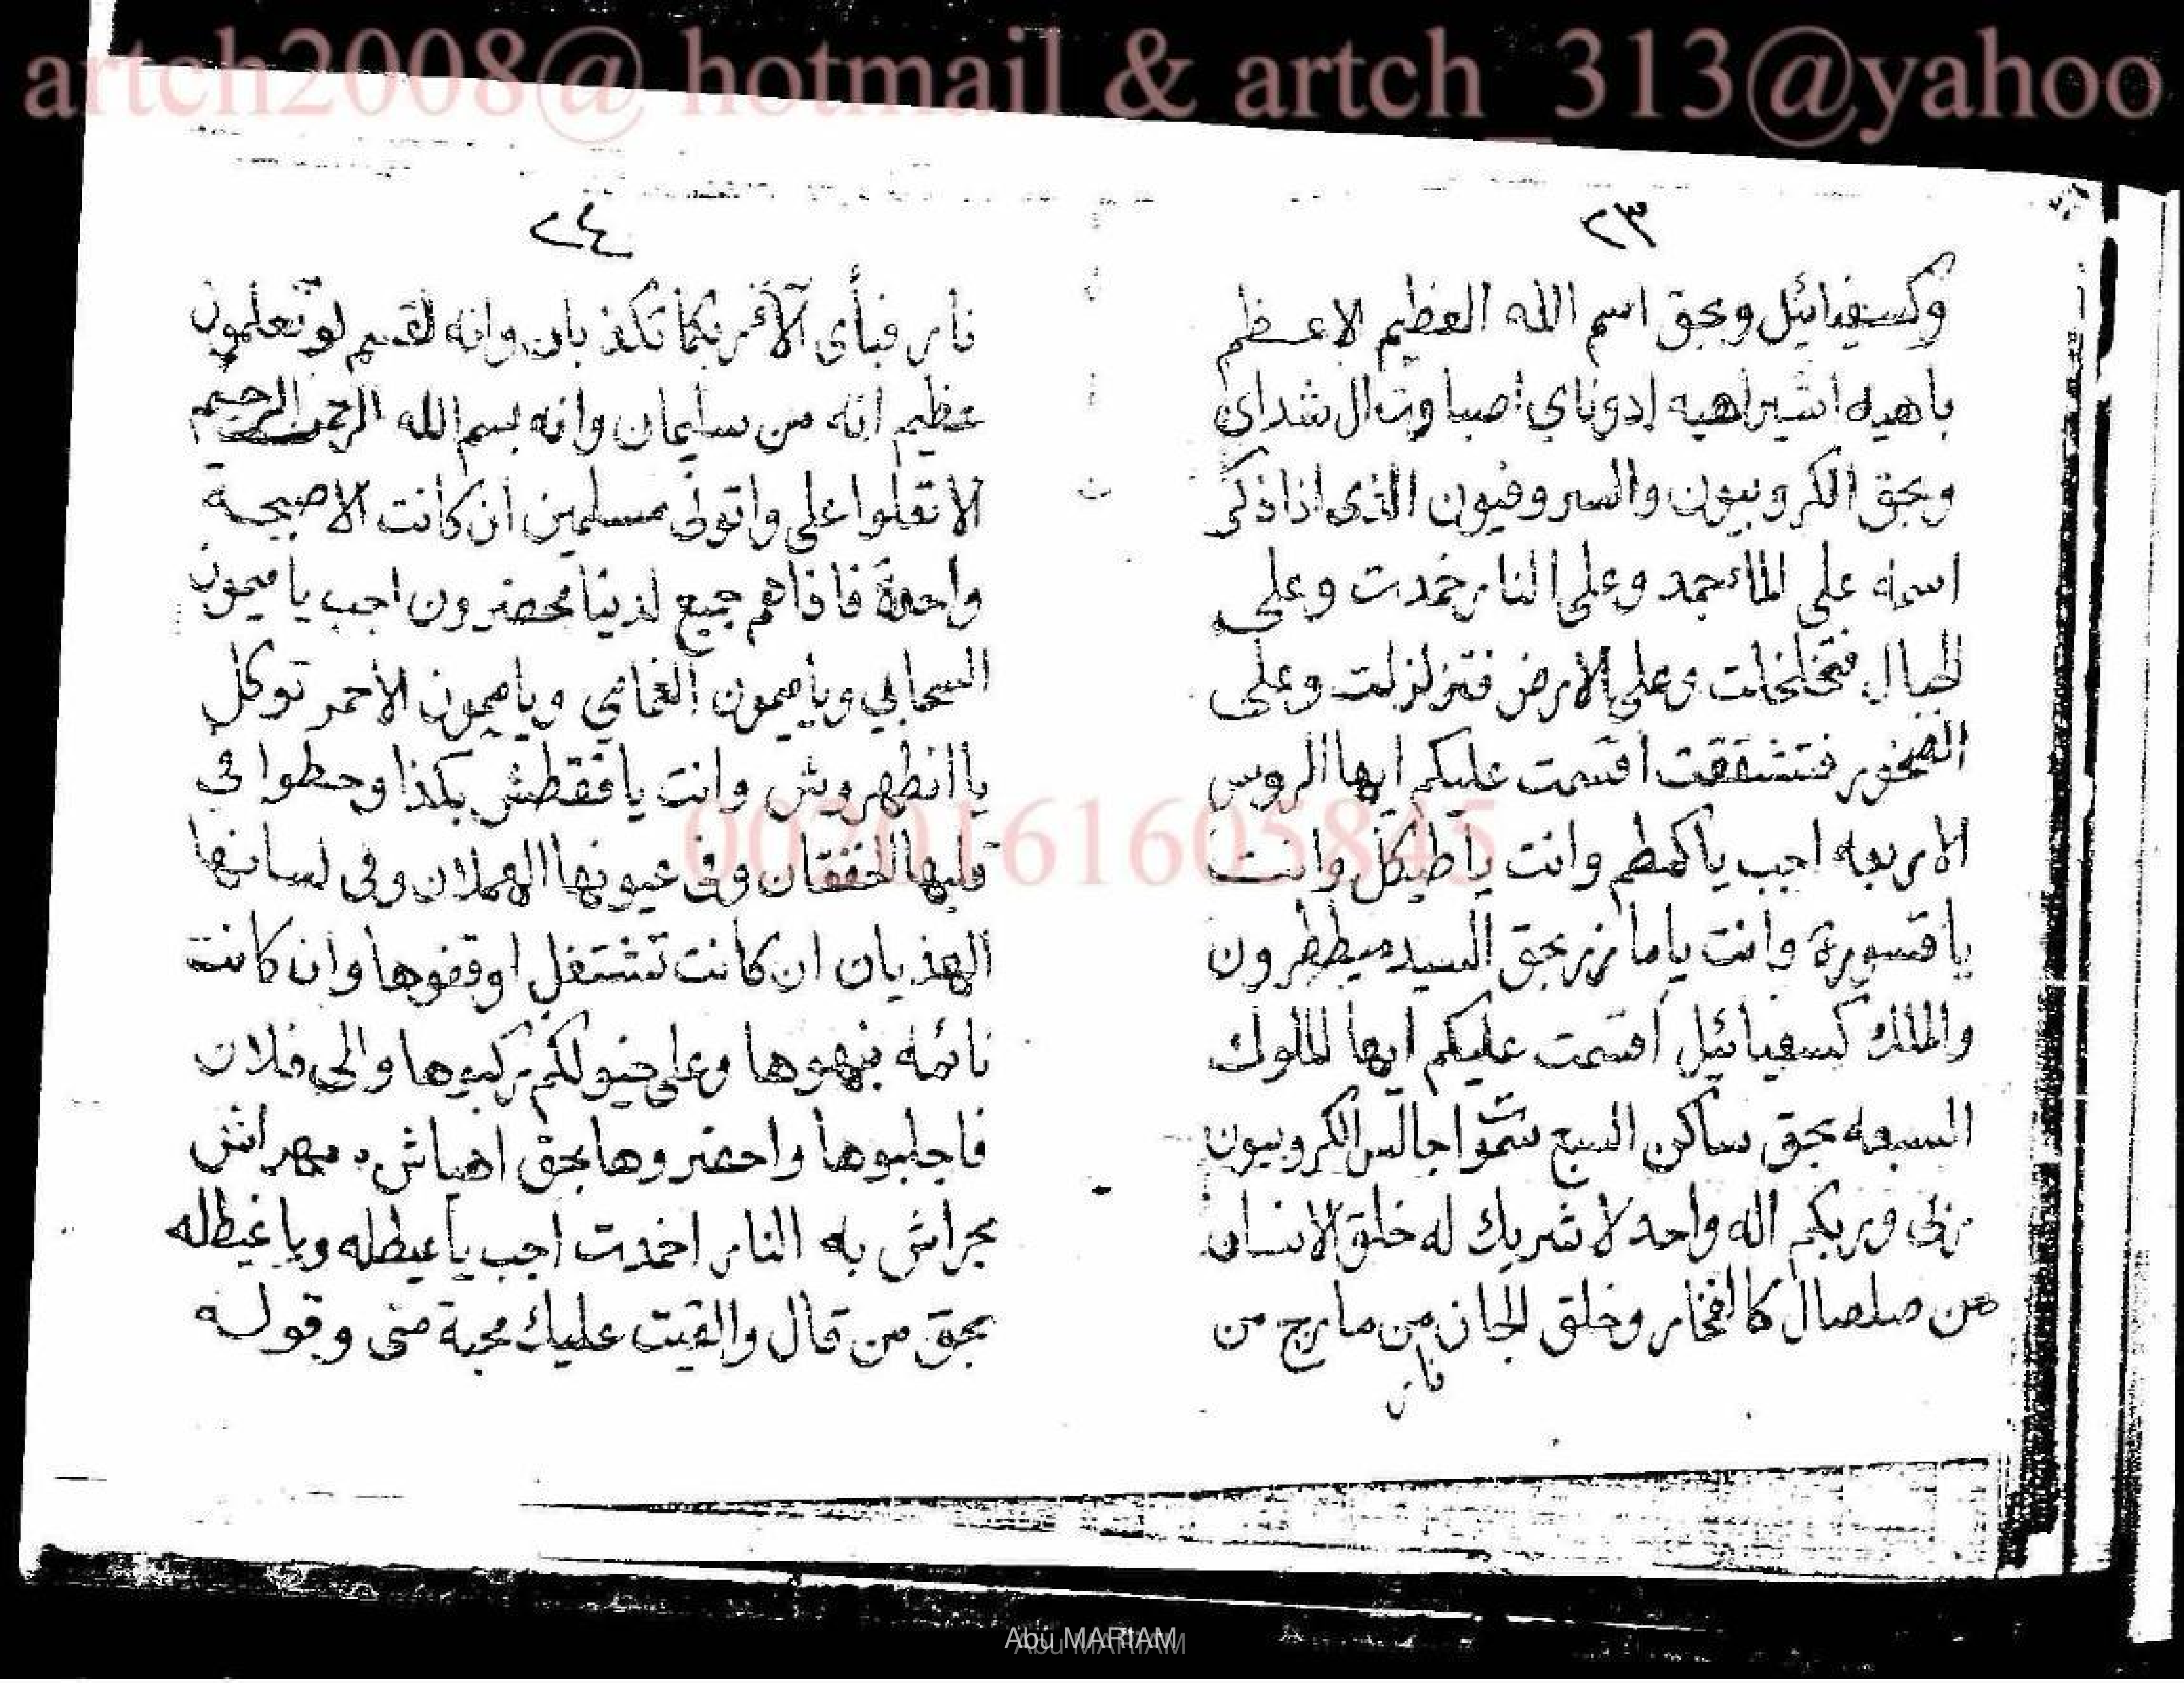 artch2008@ hotmail & artch_313@yahoo
٢٣
وكسفيائيل وبحق اسم الله العظيم الاعظم
باهيه اشيراهيه ادوناي اصباوت ال شداي
وبحق الكروبيون والسروفيون الذى اذا ذكر
اسمه على الماء جمد وعلى النار خمدت وعلى
الجبال فتخلخلت وعلى الارض فتزلزلت وعلى
الصخور فتشققت اقسمت عليكم ايها الروس
الاربعه اجب ياكمطم وانت ياطيكل وانت
ياقسورة وانت يامازر بحق السيد ميططرون
والملك كسفيائيل اقسمت عليكم ايها الملوك
السبعه بحق ساكن السبع سموا جالس الكروبيون
ربى وربكم اله واحد لا شريك له خلق الانسان
من صلصال كالفخار وخلق الجان من مارج من
نار
٢٤
نار فبأى آلآء ربكما تكذبان وانه لقسم لو تعلمون
عظيم انه من سليمان وانه بسم الله الرحمن الرحيم
الا تعلوا على واتونى مسلمين ان كانت الا صيحة
واحدة فاذاهم جميع لدينا محضرون اجب ياميمون
السحابي وياميمون الغمامي وياميمون الأحمر توكل
ياانطهروش وانت ياقفطش بكذا وحطوا في
قلبها الخفقان وفى عيونها الهملان وفى لسانها
الهذيان ان كانت تشتغل اوقفوها وان كانت
نائمه نبهوها وعلى خيولكم تركبوها والى فلان
فاجلبوها واحضروها بحق اهياش مهراش
بحراش به النار اخمدت اجب ياعيطله وياغيطله
بحق من قال والقيت عليك محبة منى وقوله
002016160584
Abu MARIAM